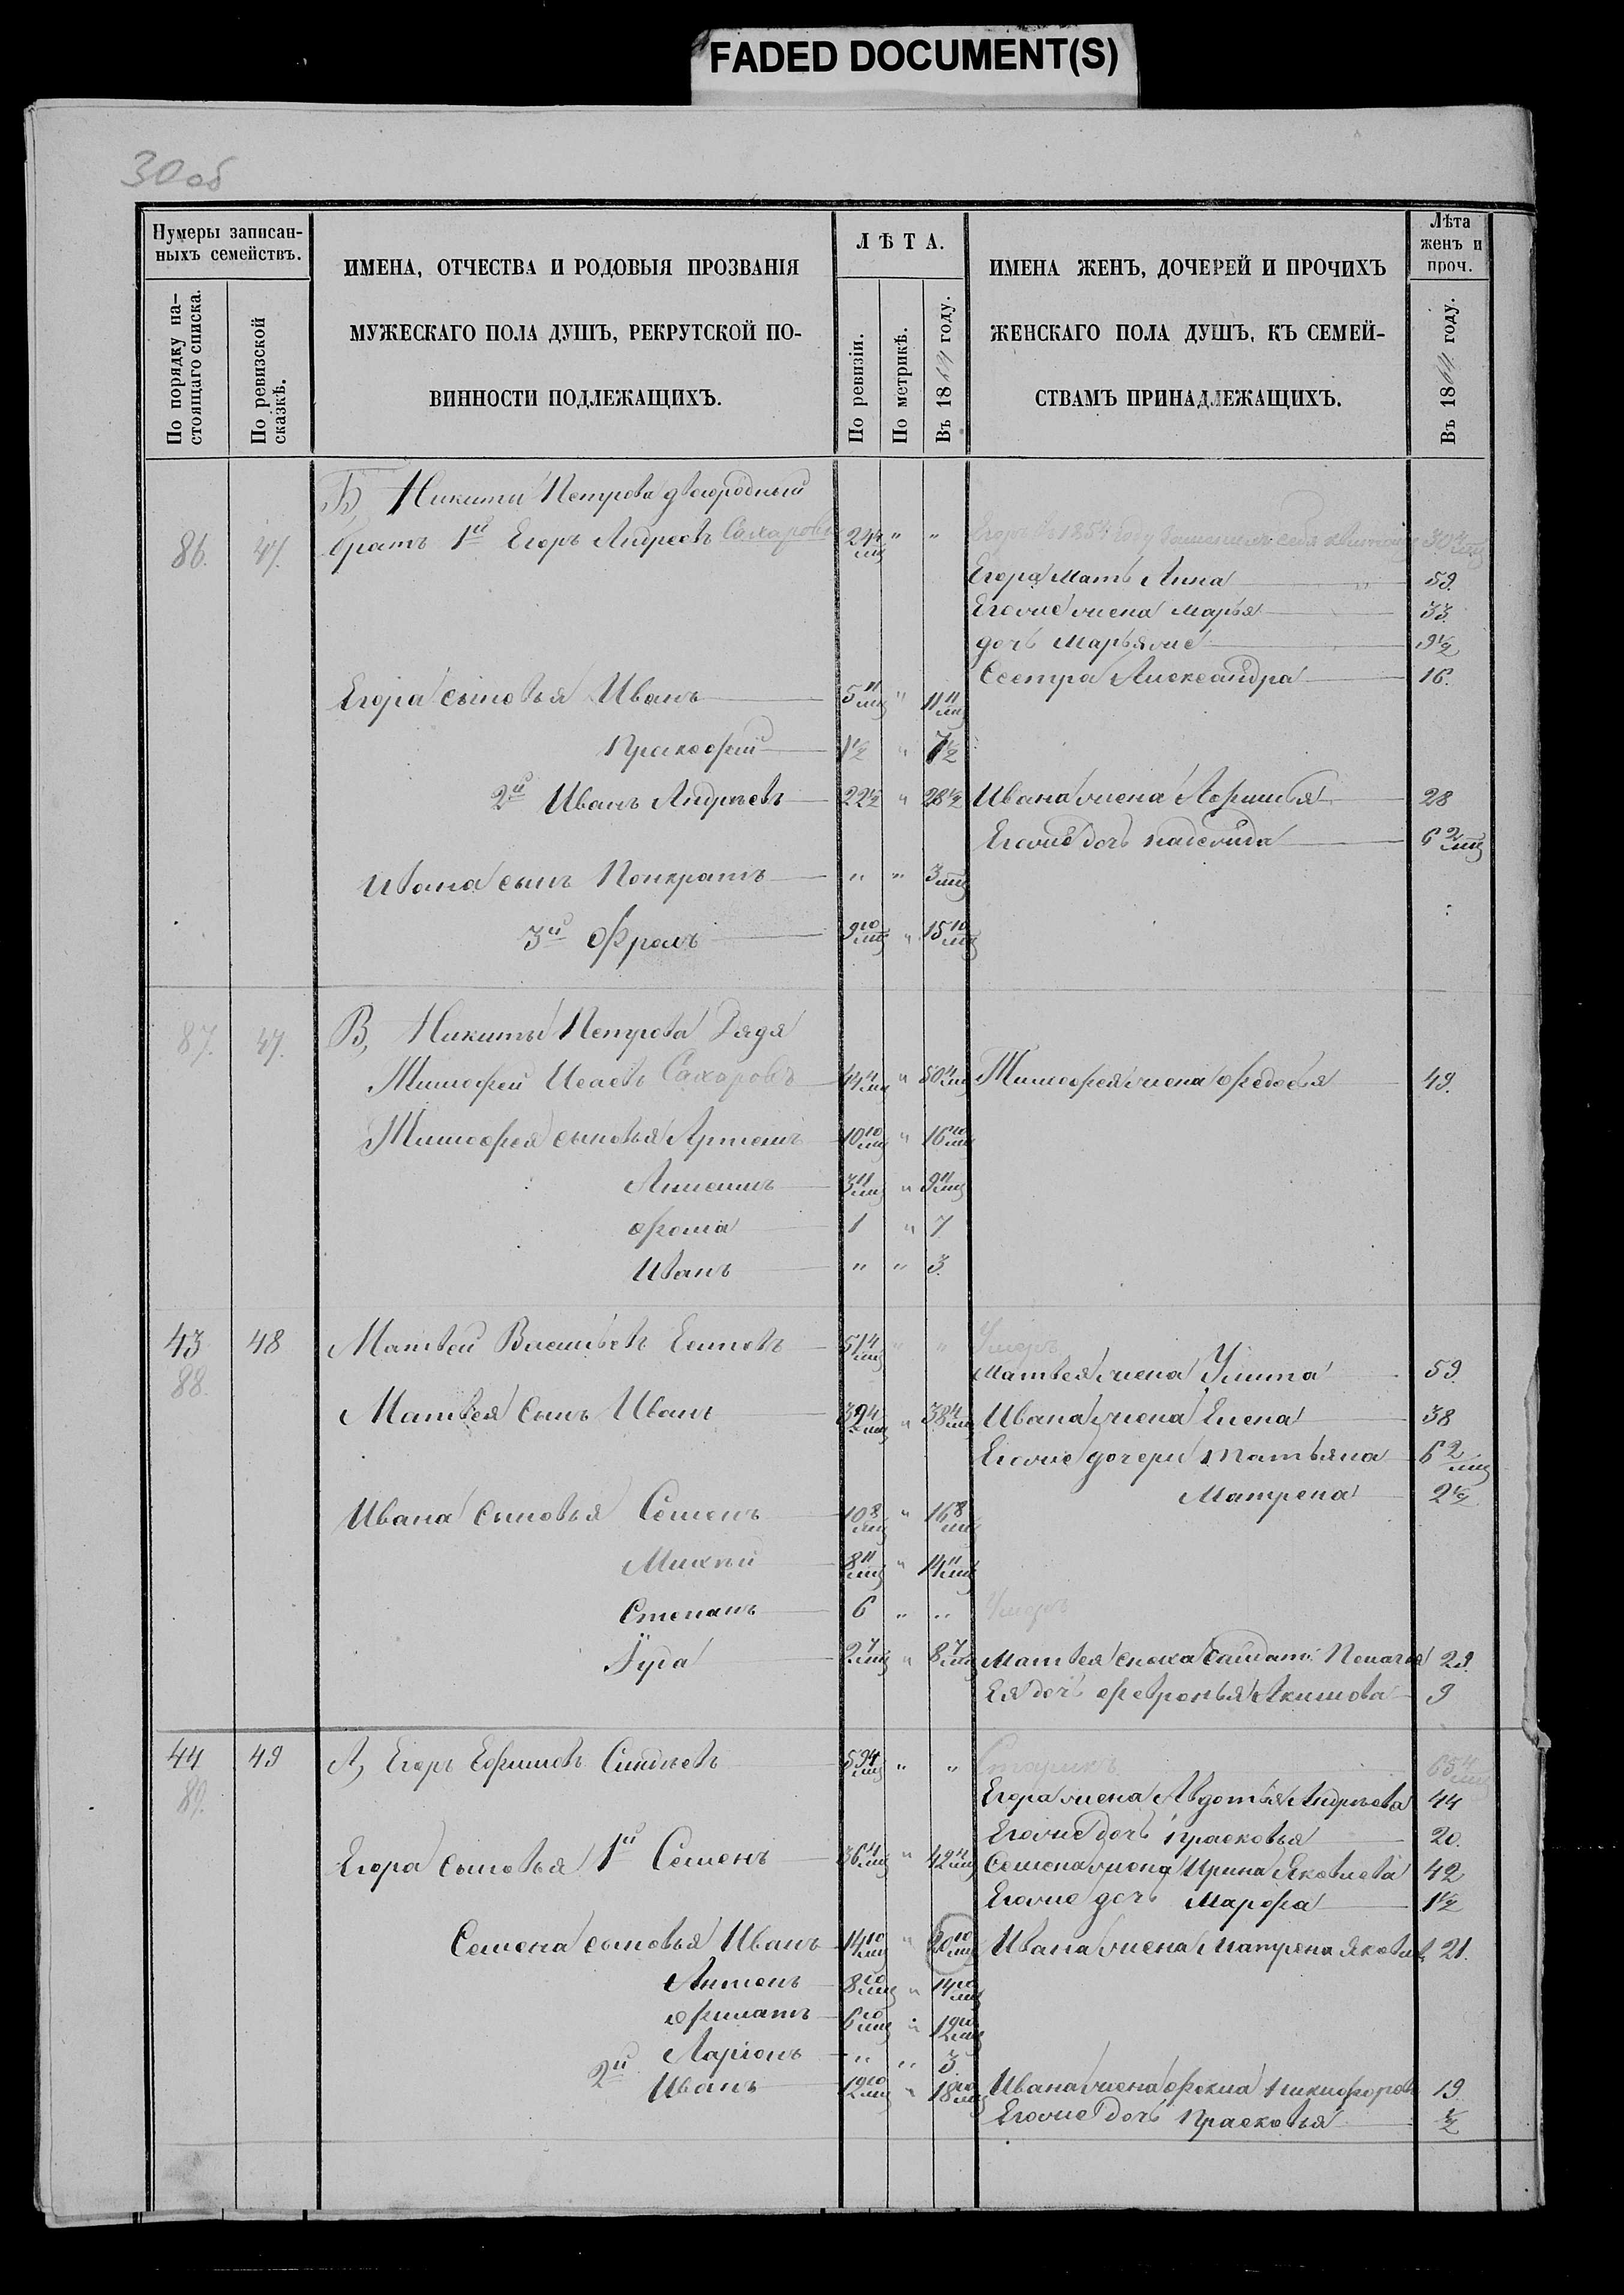 FADED DOCUMENT(S)
30 об
Нумеры записан-
ныхъ семействъ.
По порядку на-
стоящаго списка.
По ревизской
сказкѣ.
ИМЕНА, ОТЧЕСТВА И РОДОВЫЯ ПРОЗВАНІЯ
МУЖЕСКАГО ПОЛА ДУШЪ, РЕКРУТСКОЙ ПО-
ВИННОСТИ ПОДЛЕЖАЩИХЪ.
ЛѢТА.
По ревизіи.
По метрикѣ.
Въ 1864 году.
ИМЕНА ЖЕНЪ, ДОЧЕРЕЙ И ПРОЧИХЪ
ЖЕНСКАГО ПОЛА ДУШЪ, КЪ СЕМЕЙ-
СТВАМЪ ПРИНАДЛЕЖАЩИХЪ.
Лѣта
женъ и
проч.
Въ 1864 году.
Б, Никиты Петрова двоюродный
86. 47. братъ 1й Егоръ Андреевъ Сахаровъ 24 4/мц " " Егоръ въ 1854 году себя 30 4/мц
Егора мать Анна 59.
Егоже жена Марья 33.
дочь Марья же 9 1/2
Сестра Александра 16.
Егора сыновья Иванъ 5 11/мц " 11 11/мц
Пракофій 1 1/2 " 7 1/2
2й Иванъ Андреевъ 22 1/2 " 28 1/2 Ивана жена Афимья 28
Егоже дочь Надежда 6 2/мц
Ивана сынъ Понкратъ " " 3 мц
3й Фролъ 9 10/мц " 15 10/мц
87. 47. В, Никиты Петрова дядя
Тимофей Исаевъ Сахаровъ 44 4/мц " 50 4/мц Тимофея жена Федосья 49.
Тимофея сыновья Артемъ 10 10/мц " 16 10/мц
Анисимъ 3 11/мц " 9 11/мц
Фома 1 " 7
Иванъ " " 3.
43 48 Матвей Васильевъ 51 4/мц " " Умеръ
88. Матвея жена Улита 59.
Матвея сынъ Иванъ 32 4/мц " 38 4/мц Ивана жена Елена 38
Егоже дочери Татьяна 6 2/мц
Матрена 2 1/2
Ивана сыновья Семенъ 10 8/мц " 16 8/мц
Михѣй 8 11/мц " 14 11/мц
Степанъ 6 " " Умеръ
Іуда 2 7/мц " 8 7/мц Матвея сноха солдат. Пелагея 29.
Ея дочь Февронья Акимова 9
44 49 А, Егоръ Ефимовъ 59 4/мц " " Старикъ 65 4/мц
89. Егора жена Авдотья Андреева 44
Егоже дочь Прасковья 20.
Егора сыновья 1й Семенъ 36 4/мц " 42 4/мц Семена жена Ирина Яковлева 42
Егоже дочь Марфа 1 1/2
Семена сыновья Иванъ 14 10/мц " 20 10/мц Ивана жена Матрена Яковлев 21.
Антонъ 8 10/мц " 14 10/мц
Филатъ 6 10/мц " 12 10/мц
Ларіонъ " " 3
2й Иванъ 12 10/мц " 18 10/мц Ивана жена Фекла Никифоров 19
Егоже дочь Прасковья 1/2